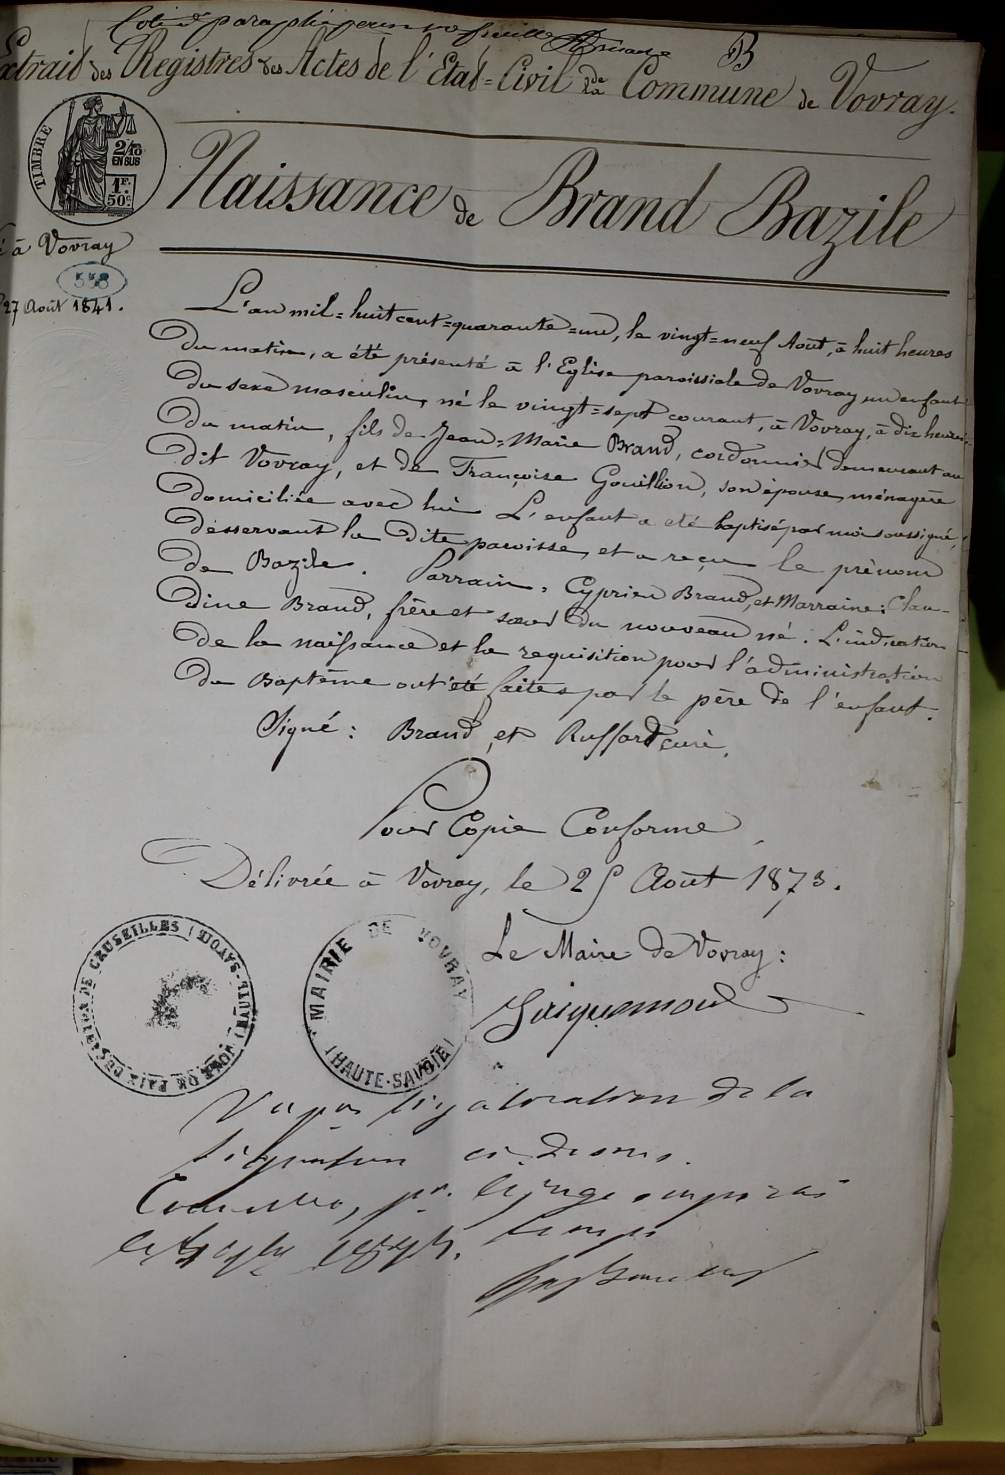 Coté et paraphé
B
Extrait des Registres des Actes de l'Etat-Civil de la Commune de Vovray.
TIMBRE
2/10
EN SUS
1F.
50c.
Naissance de Brand Bazile
à Vovray
558
27 Août 1841.
L'an mil=huit cent=quarante=un, le vingt=neuf Août, à huit heures
du matin, a été présenté à l'Eglise paroissiale de Vovray un enfant
du sexe masculin, né le vingt=sept courant, à Vovray, à dix heures
du matin, fils de Jean=Marie Brand, cordonnier demeurant au
dit Vovray, et de Françoise Gouillion, son épouse, ménagère
domiciliée avec lui. L'enfant a été baptisé par moi soussigné,
desservant la dite paroisse, et a reçu le prénom
de Bazile. Parrain, Cyprien Brand, et Marraine: Clau-
dine Brand, frère et sœur du nouveau né. L'indication
de la naissance et la requisition pour l'administration
du Baptême ont été faites par le père de l'enfant.
Signé: Brand, et Ruffard curé.
Pour Copie Conforme
Délivrée à Vovray, le 25 Août 1873.
Le Maire de Vovray:
Jacquemoud
JUSTICE DE PAIX DE CANTON DE CRUSEILLES (HAUTE-SAVOIE)
MAIRIE DE VOVRAY
(HAUTE-SAVOIE)
Vu pour légalisation de la
signature ci-dessus.